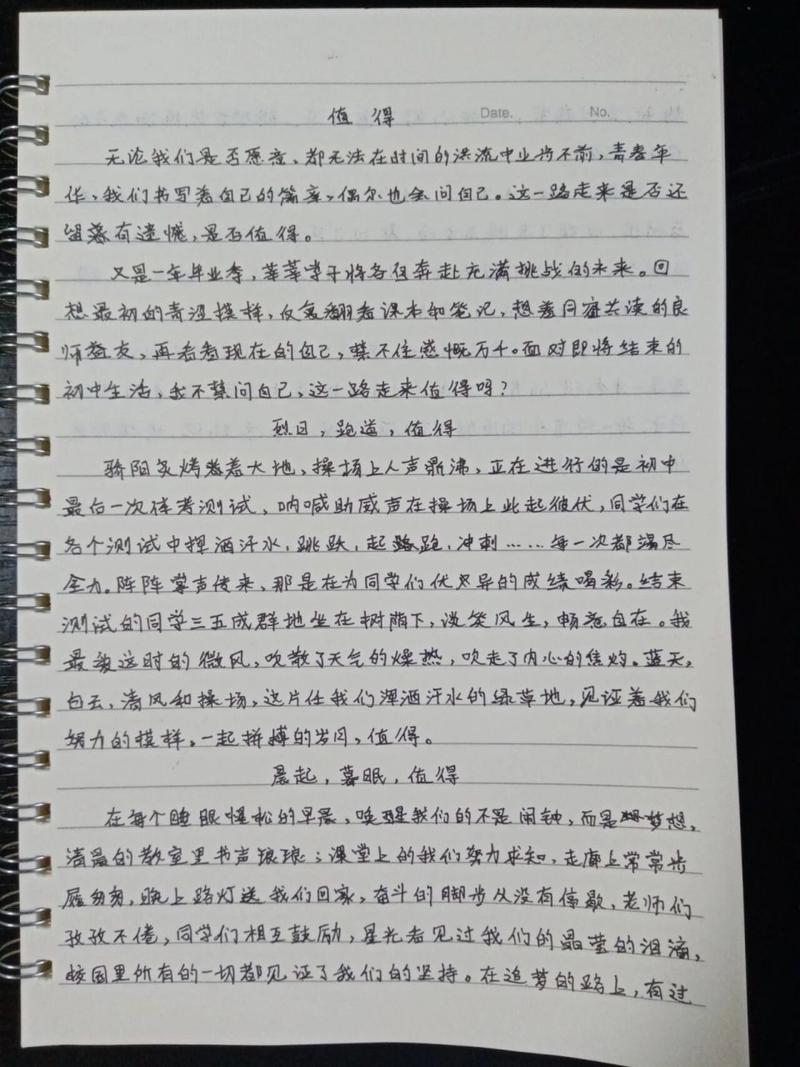 值得 Date. No.
无论我们是否愿意、都无法在时间的洪流中止步不前,青春年
华,我们书写着自己的篇章,偶尔也会问自己。这一路走来是否还
留落有遗憾,是否值得。
又是一年毕业季,莘莘学子将各自奔赴充满挑战的未来。回
想最初的青涩模样,反复翻看课本和笔记,想着同窗共读的良
师益友,再看看现在的自己,禁不住感慨万千。面对即将结束的
初中生活,我不禁问自己,这一路走来值得吗?
烈日,跑道,值得
骄阳炙烤着大地,操场上人声鼎沸,正在进行的是初中
最后一次体考测试、呐喊助威声在操场上此起彼伏,同学们在
各个测试中挥洒汗水,跳跃,起跑,冲刺……每一次都竭尽
全力。阵阵掌声传来、那是在为同学们优异的成绩喝彩。结束
测试的同学三五成群地坐在树荫下,谈笑风生,畅意自在。我
最爱这时的微风,吹散了天气的燥热,吹走了内心的焦灼。蓝天,
白云,清风和操场,这片任我们挥洒汗水的绿草地,见证着我们
努力的模样,一起拼搏的岁月,值得。
晨起,暮眠,值得
在每个睡眼惺忪的早晨,唤醒我们的不是闹钟,而是梦想,
清晨的教室里书声琅琅;课堂上的我们努力求知,走廊上常常步
履匆匆,晚上路灯送我们回家,奋斗的脚步从没有停歇,老师们
孜孜不倦,同学们相互鼓励,星光者见过我们的晶莹的泪滴,
校园里所有的一切都见证了我们的坚持。在追梦的路上,有过